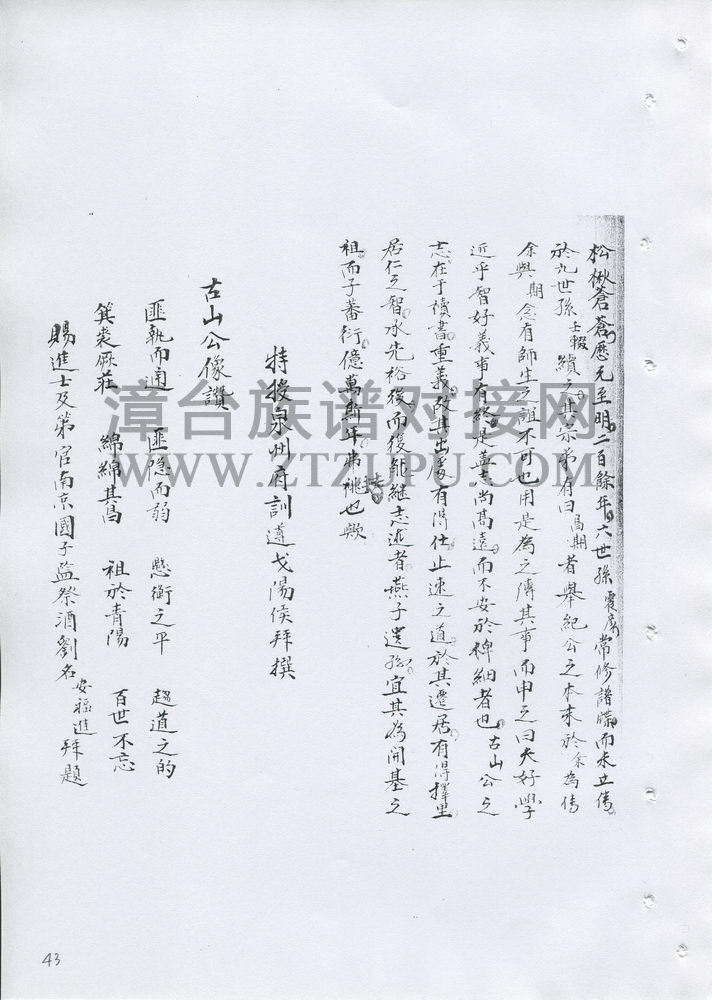 松楸蒼蒼歷元至明二百餘年六世孫震彥常修譜牒而未立傳
於九世孫士輟續之其宗弟有曰昌期者舉紀公之本末於余為傳
余與期念有師生之誼不可也用是為之傳其事而申之曰夫好學
近乎智好義事有終是蓋志尚高遠而不安於稗細者也古山公之
志在于積書重義故其出處有得仕止速之道於其遷居有得擇里
居仁之智承先裕後而後能繼志述者燕子遺孫宜其為開基之
祖而子蕃衍億萬斯年弗祧也歟
特授泉州府訓遵弋陽侯拜撰
古山公像讚
匪執而通 匪隐而弱 懸衡之平 趨道之的
箕裘厥莊 綿綿其昌 祖於青陽 百世不忘
賜進士及第官南京國子監祭酒劉名安福進拜題
漳台族谱对接网
WWW.ZTZUPU.COM
43